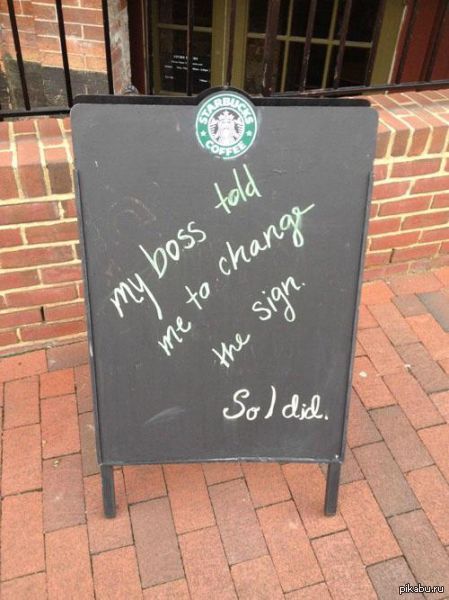 STARBUCKS
COFFEE
my boss told
me to change
the sign.
So I did.
pikabu.ru